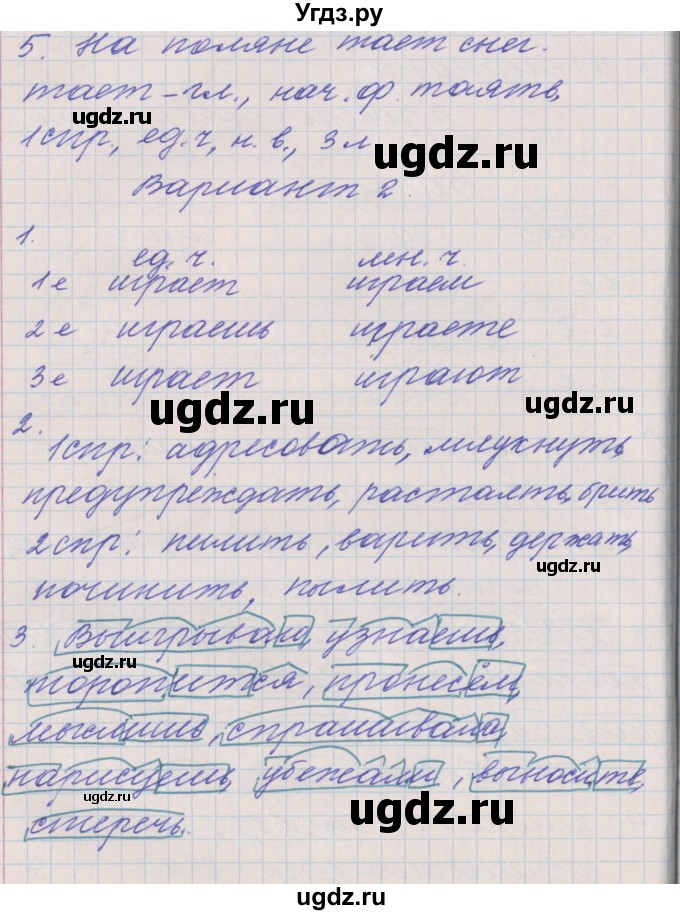 Угдз.ру
5. На поляне тает снег.
тает – гл., нач. ф. таять,
ugdz.ru
1 спр., ед. ч., н. в., 3 л.
ugdz.ru
Вариант 2.
1.
ед. ч. мн. ч.
1 е играет играем
2 е играешь играете
3 е играет играют
ugdz.ru ugdz.ru
2.
1 спр: адресовать, мяукнуть,
предупреждать, растаять, брить
2 спр: пилить, варить, держать,
ugdz.ru
починить, пылить.
3. Выигрываю, узнаешь,
ugdz.ru
торопится, пронесём,
мыслишь, спрашивала,
ugdz.ru
нарисуешь, убежали, выносить,
ugdz.ru ugdz.ru
стеречь.
ugdz.ru